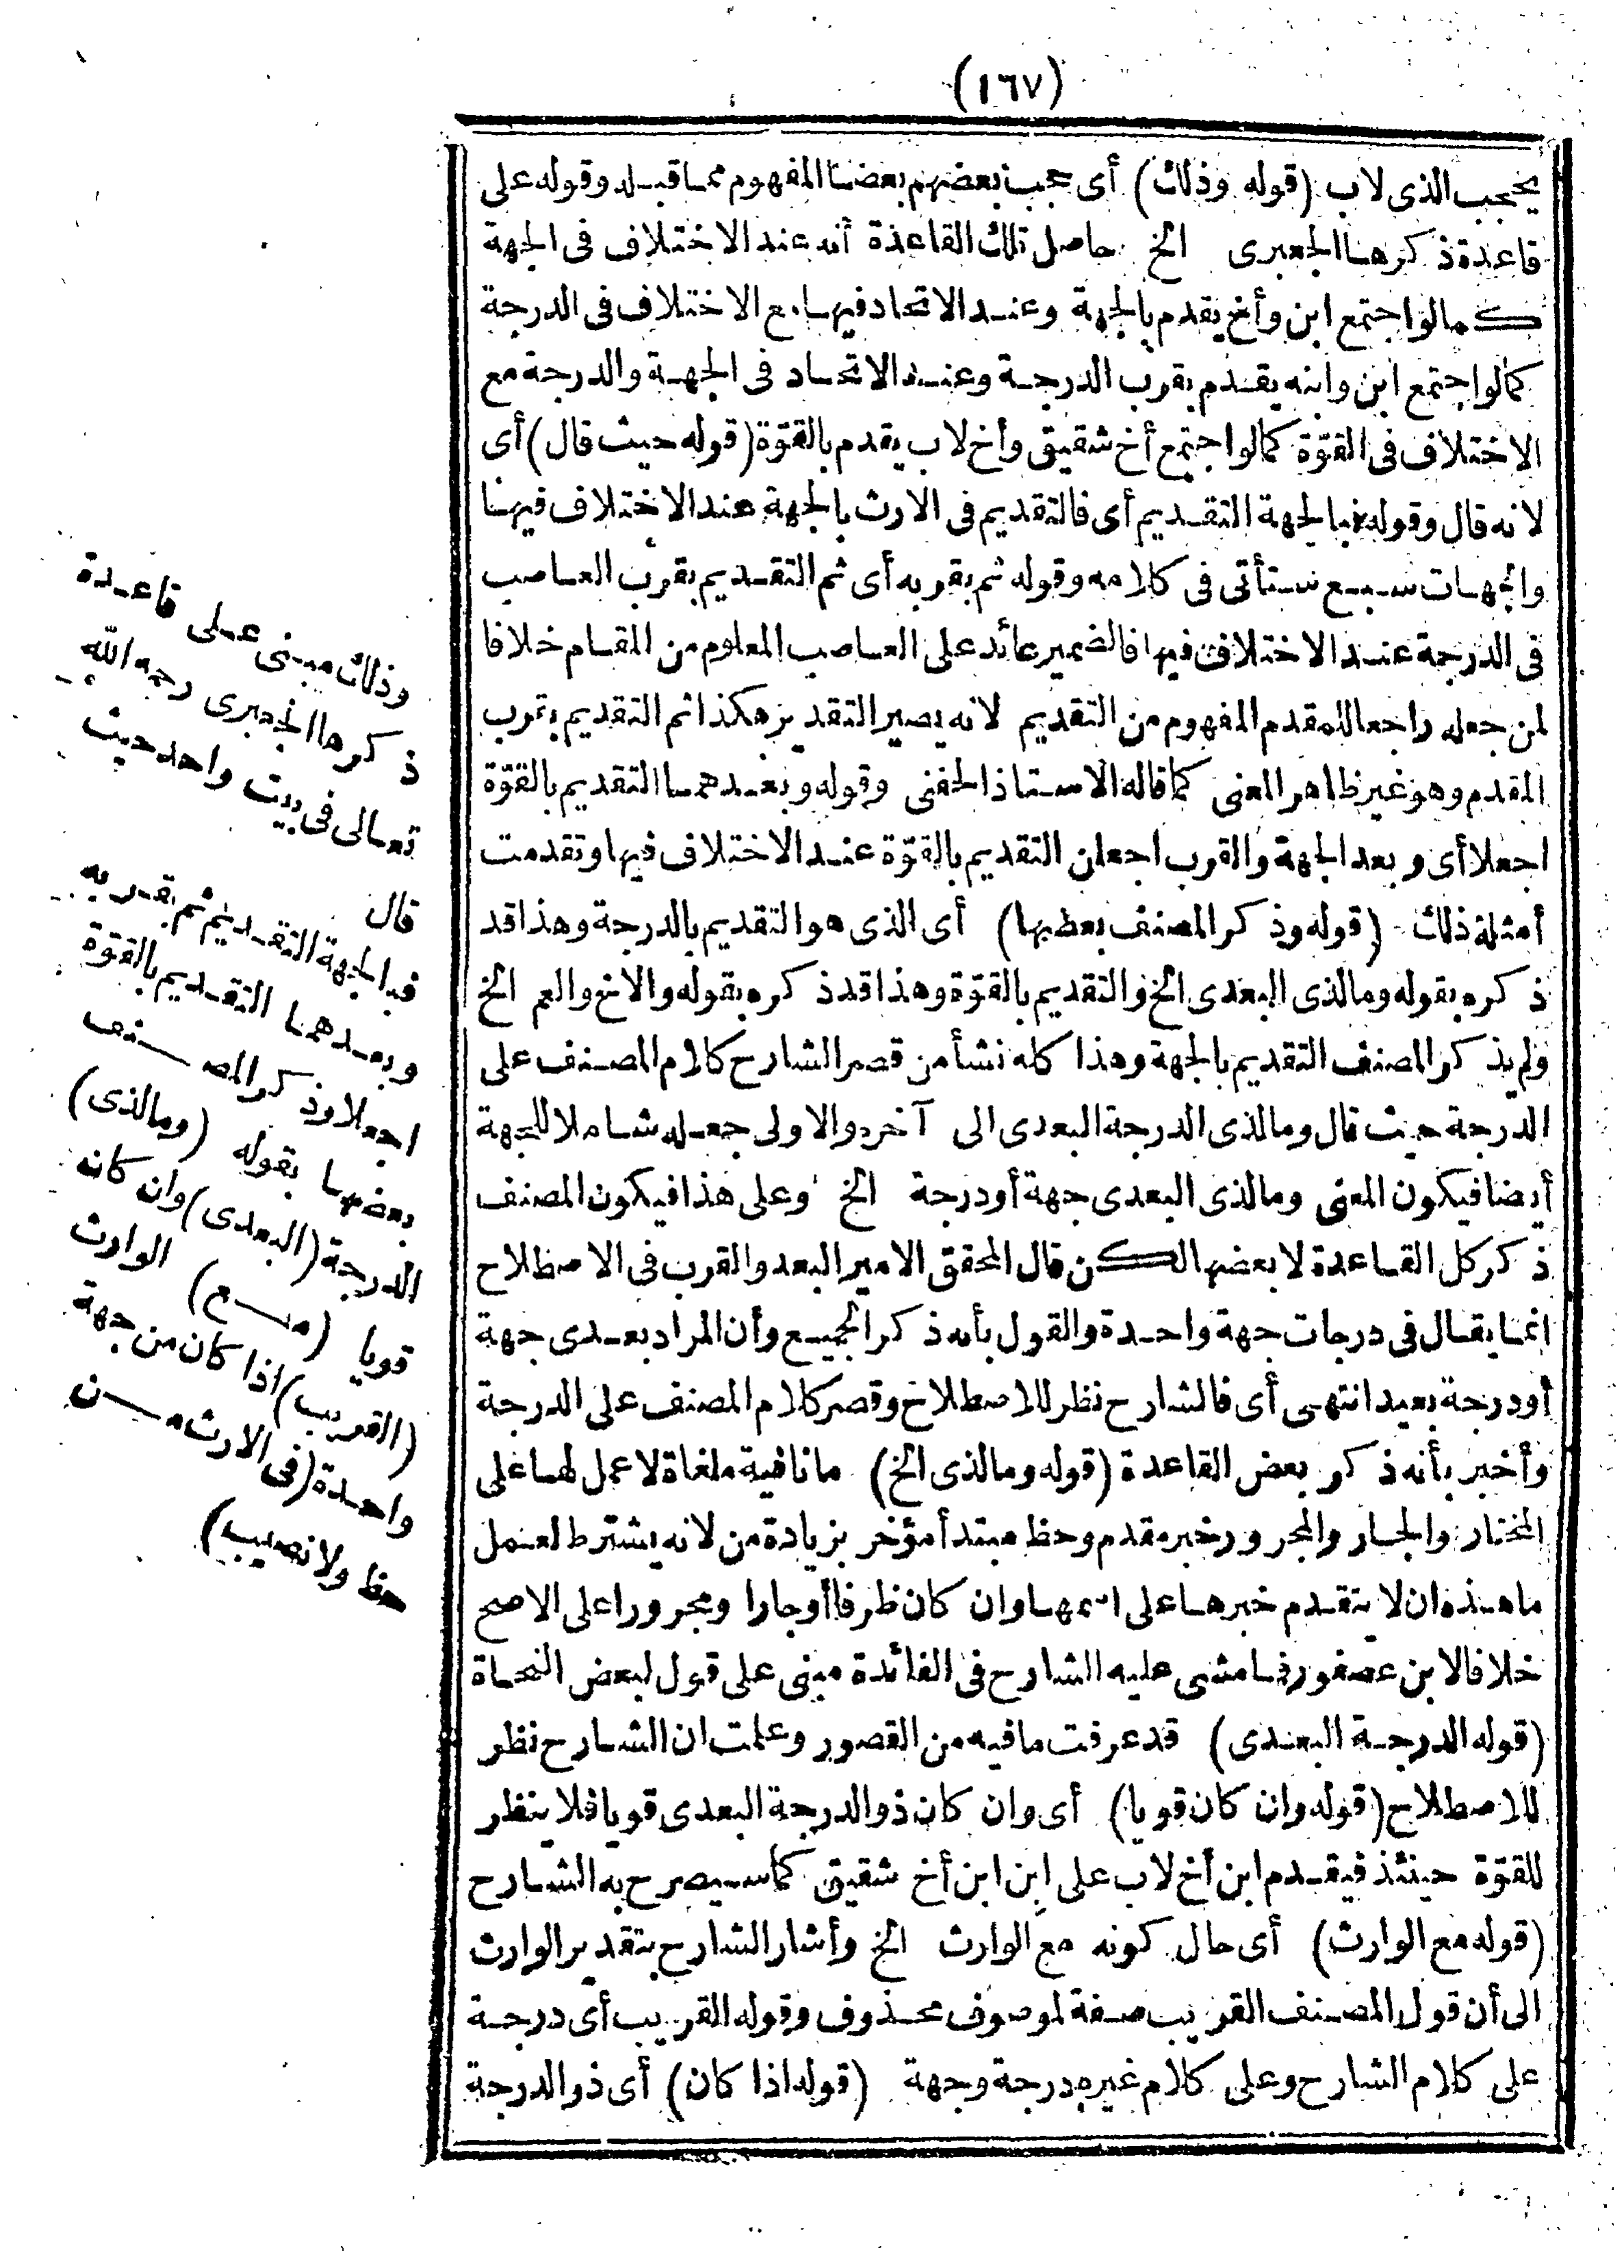 (١٦٧)
يحجب الذى لاب (قوله وذلك) أى حجب بعضهم بعضا المفهوم مما قبله وقوله على
قاعدة ذكرها الجعبرى الخ حاصل تلك القاعدة أنه عند الاختلاف فى الجهة
كمالو اجتمع ابن وأخ يقدم بالجهة وعند الاتحاد فيها مع الاختلاف فى الدرجة
كمالو اجتمع ابن وابنه يقدم بقرب الدرجة وعند الاتحاد فى الجهة والدرجة مع
الاختلاف فى القوّة كمالو اجتمع أخ شقيق وأخ لاب يقدم بالقوّة (قوله حيث قال) أى
لانه قال وقوله فبالجهة التقديم أى فالتقديم فى الارث بالجهة عند الاختلاف فيها
والجهات سبع ستأتى فى كلامه وقوله ثم بقربه أى ثم التقديم بقرب العاصب
فى الدرجة عند الاختلاف فيها فالضمير عائد على العاصب المعلوم من المقام خلافا
لمن جعله راجعا للمقدم المفهوم من التقديم لانه يصير التقدير هكذا ثم التقديم بقرب
المقدم وهو غير ظاهر المعنى كما قاله الاستاذ الحفنى وقوله وبعدهما التقديم بالقوّة
اجعلا أى وبعد الجهة والقرب اجعلن التقديم بالقوّة عند الاختلاف فيها وتقدمت
أمثلة ذلك (قوله وذكر المصنف بعضها) أى الذى هو التقديم بالدرجة وهذا قد
ذكره بقوله ومالذى البعدى الخ والتقديم بالقوّة وهذا قد ذكره بقوله والاخ والعم الخ
ولم يذكر المصنف التقديم بالجهة وهذا كله نشأ من قصر الشارح كلام المصنف على
الدرجة حيث قال ومالذى الدرجة البعدى الى آخره والاولى جعله شاملا للجهة
أيضا فيكون المعنى ومالذى البعدى جهة أو درجة الخ وعلى هذا فيكون المصنف
ذكر كل القاعدة لا بعضها لكن قال المحقق الامير البعد والقرب فى الاصطلاح
انما يقال فى درجات جهة واحدة والقول بأنه ذكر الجميع وأن المراد بعدى جهة
أو درجة بعيد انتهى أى فالشارح نظر للاصطلاح وقصر كلام المصنف على الدرجة
وأخبر بأنه ذكر بعض القاعدة (قوله ومالذى الخ) ما نافية ملغاة لا عمل لها على
المختار والجار والمجرور خبر مقدم وحظ مبتدأ مؤخر بزيادة من لانه يشترط لعمل
ما هذه ان لا يتقدم خبرها على اسمها وان كان ظرفا أو جارا ومجرورا على الاصح
خلافا لابن عصفور فما مشى عليه الشارح فى الفائدة مبنى على قول لبعض النحاة
(قوله الدرجة البعدى) قد عرفت ما فيه من القصور وعلمت ان الشارح نظر
للاصطلاح (قوله وان كان قويا) أى وان كان ذو الدرجة البعدى قويا فلا ينظر
للقوّة حينئذ فيقدم ابن أخ لاب على ابن ابن أخ شقيق كما سيصرح به الشارح
(قوله مع الوارث) أى حال كونه مع الوارث الخ وأشار الشارح بتقدير الوارث
الى أن قول المصنف القريب صفة لموصوف محذوف وقوله القريب أى درجة
على كلام الشارح وعلى كلام غيره درجة وجهة (قوله اذا كان) أى ذو الدرجة
وذلك مبنى على قاعدة
ذكرها الجعبرى رحمه الله
تعالى فى بيت واحد حيث
قال
فبالجهة التقديم ثم بقربه
وبعدهما التقديم بالقوّة
اجعلا وذكر المصنف
بعضها بقوله (ومالذى)
الدرجة (البعدى) وان كانه
قويا (مع) الوارث
(القريب) اذا كان من جهة
واحدة (فى الارث من
حظ ولا نصيب)